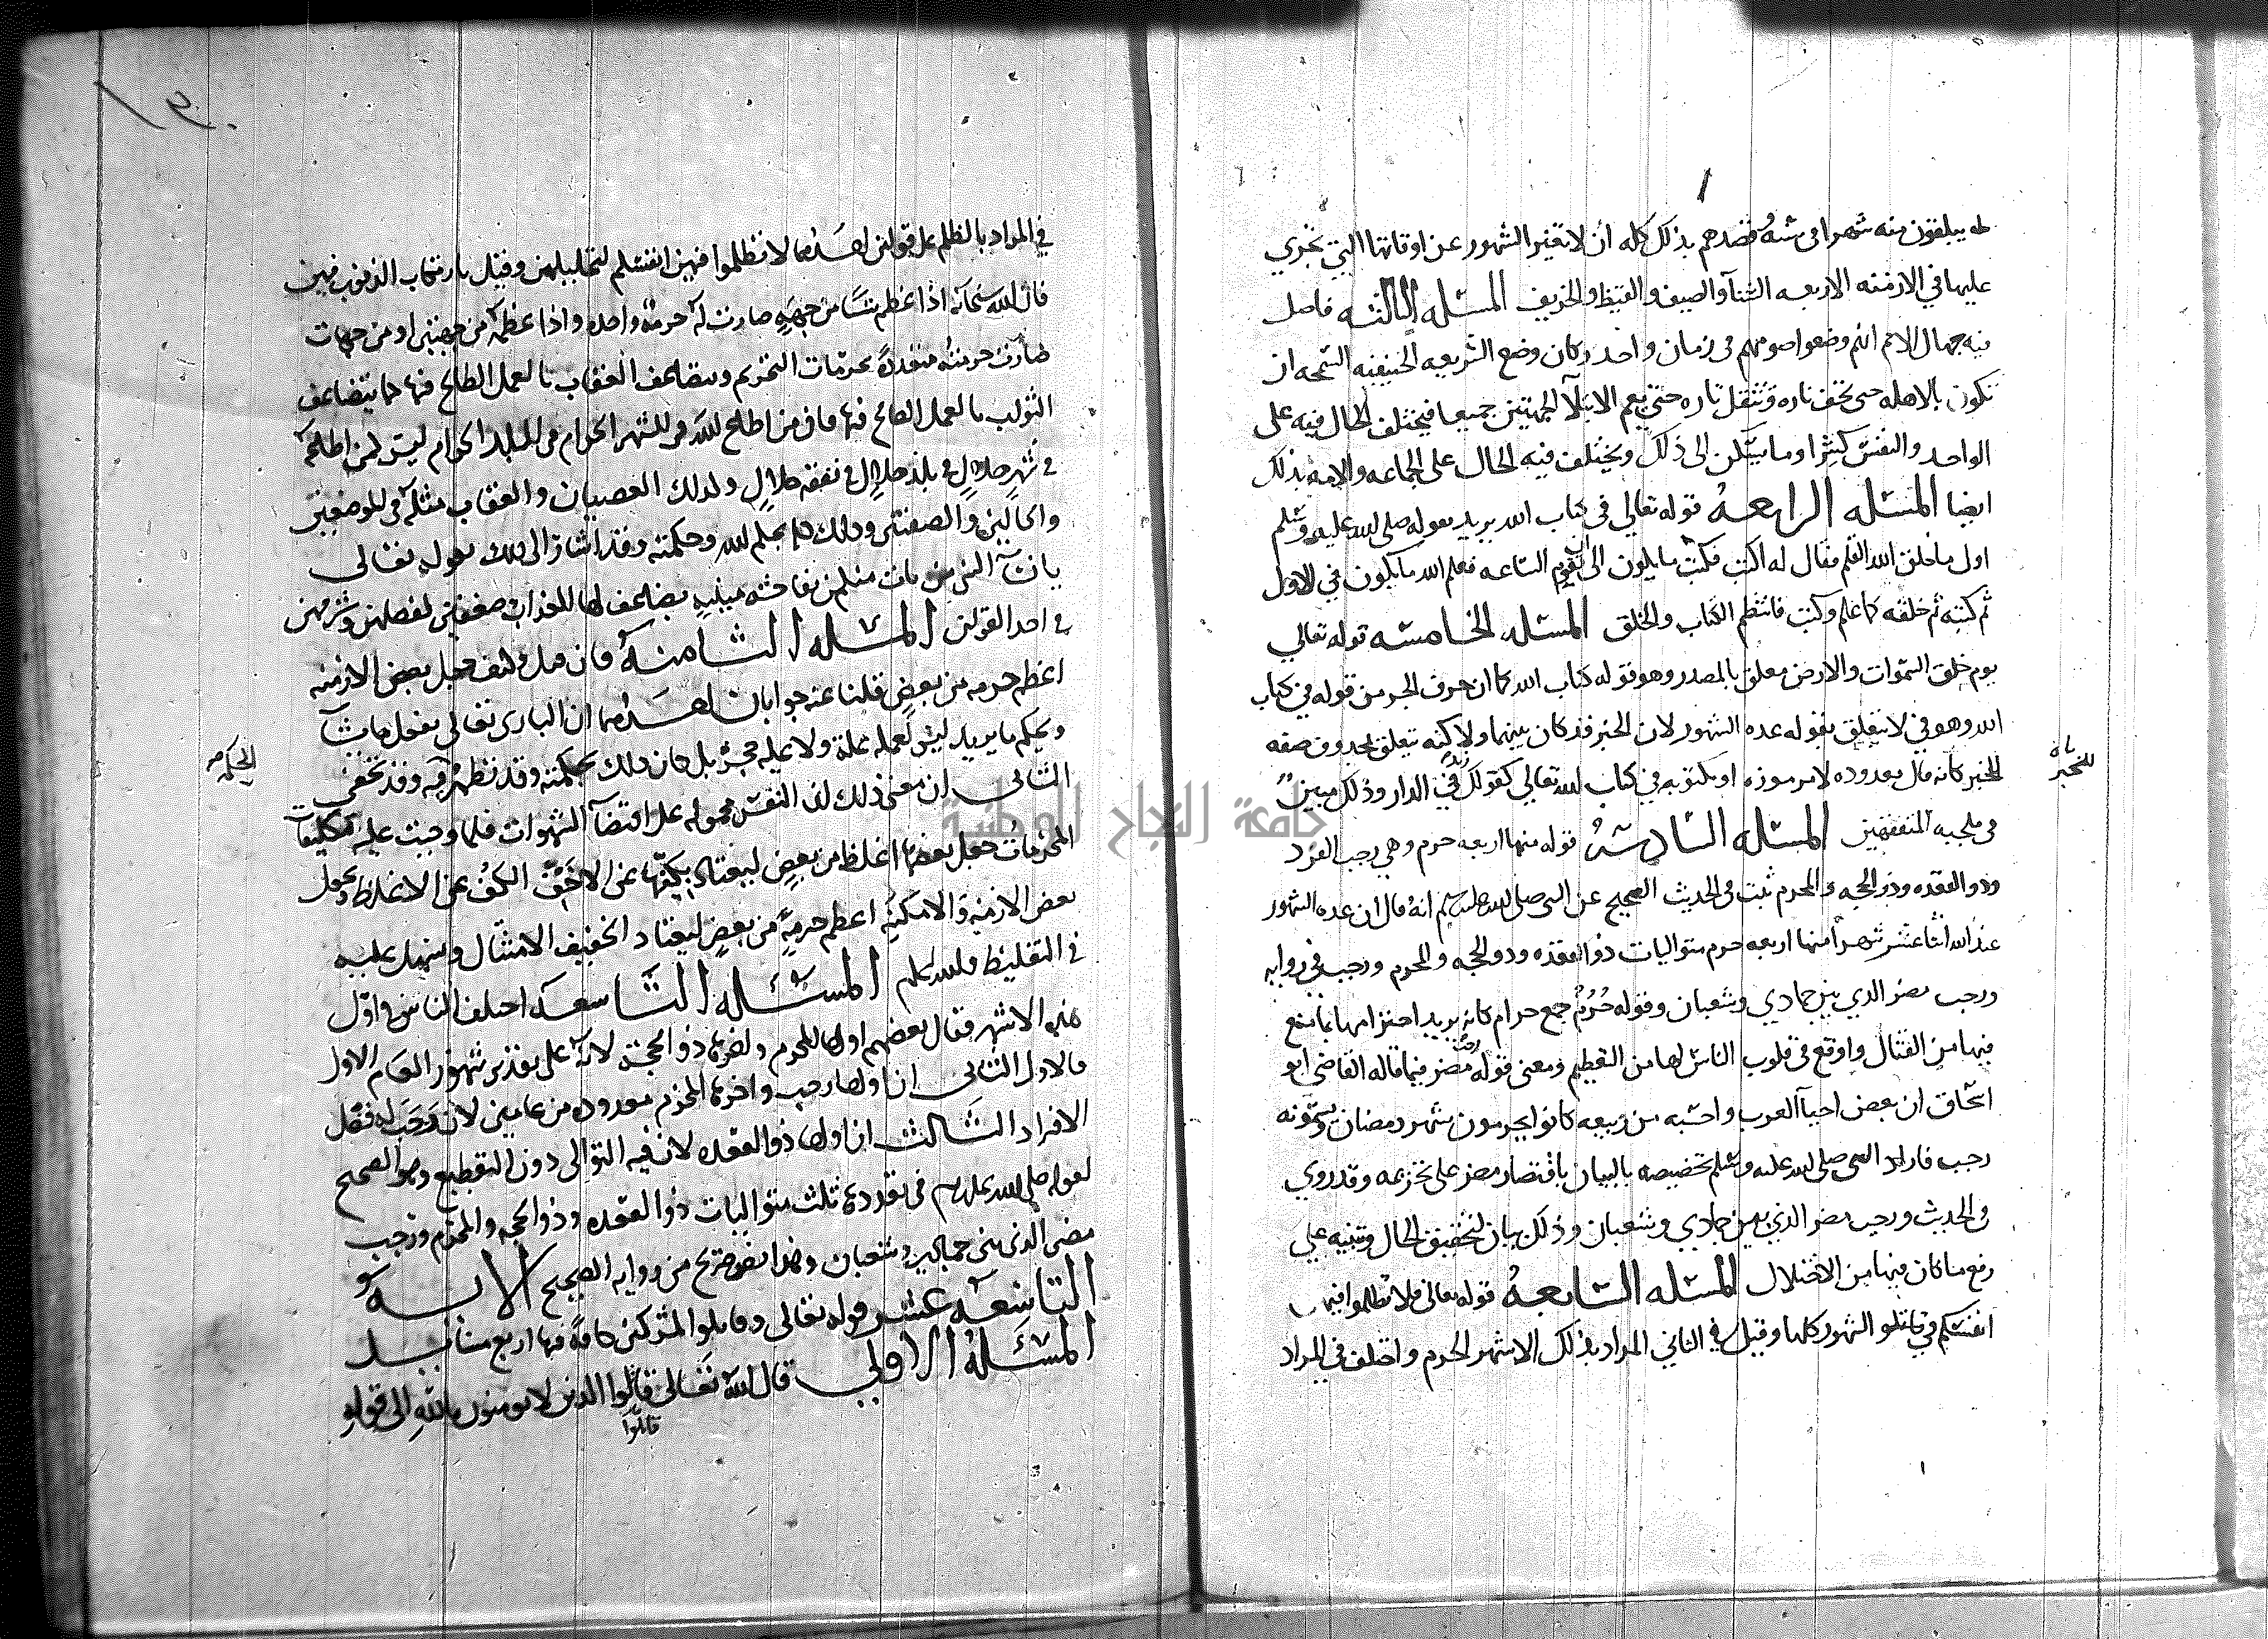 له يبلغون منه شهرا في سنه وقصدهم بذلك كله ان لا تتغير الشهور عن اوقاتها التي تجري
عليها في الازمنه الاربعه الشتآ والصيف والقيظ والخريف المسئله الثالثه فاصل
فيه جهال الامم انهم وضعوا صومهم في زمان واحد وكان وضع الشريعه الحنيفيه السمحه ان
تكون بالاهله حتى تخف تاره وتثقل تاره حتى يعم الابتلآ الجهتين جميعا فيختلف الحال فيه على
الواحد والنفس كثيرا وما يسكن الى ذلك ويختلف فيه الحال على الجماعه والامه بذلك
ايضا المسئله الرابعه قوله تعالى في كتاب الله يريد بقوله صلى الله عليه وسلم
اول ما خلق الله القلم فقال له اكتب فكتب ما يكون الى ان تقوم الساعه فعلم الله ما يكون في الاول
ثم كتبه ثم خلقه كما علم وكتب فانتظم الكتاب والخلق المسئله الخامسه قوله تعالى
يوم خلق السموات والارض معلق بالمصدر وهو قوله كتاب الله كما ان حرف الجر من قوله في كتاب
الله وهو في لا يتعلق بقوله عده الشهور لان الخبر قد كان بينهما ولاكنه يتعلق بمحذوف صفه
للخبر كانه قال معدوده لامر موزه او مكتوبه في كتاب الله تعالى كقولك زيد في الدار وذلك مبين
باه
للخبر
في ملجيه المتفقهين المسئله السادسه قوله منها اربعه حرم وهي رجب الفرد
وذو القعده وذو الحجه والمحرم ثبت في الحديث الصحيح عن النبي صلى الله عليه وسلم انه قال ان عده الشهور
عند الله اثنا عشر شهرا منها اربعه حرم متواليات ذو القعده وذو الحجه والمحرم ورجب في روايه
ورجب مضر الذي بين جمادي وشعبان وقوله حُرُمٌ جمع حرام كانه يريد احترامها بما منع
فيها من القتال واوقع في قلوب الناس لها من التعظيم ومعنى قوله رجب مضر فيما قاله القاضي ابو
اسحاق ان بعض احيآ العرب واحسبه من ربيعه كانوا يحرمون شهر رمضان ويسمونه
رجب فاراد النبي صلى الله عليه وسلم تخصيصه بالبيان باقتصار مضر على تحريمه وقد روي
في الحديث ورجب مضر الذي بين جمادي وشعبان وذلك بيان لتحقيق الحال وتنبيه على
رفع ما كان فيها من الاختلال المسئله السابعه قوله تعالى فلا تظلموا فيهن
انفسكم في الشهور كلها وقيل في الثاني المراد بذلك الاشهر الحرم واختلف في المراد
في المراد بالظلم على قولين احدهما لا تظلموا فيهن انفسكم لتحليلهن وقيل بارتكاب الذنوب فيهن
فان الله سبحانه اذا عظم شيا من جهه صارت له حرمة واحده واذا عظمه من جهتين او من جهات
صارت حرمته متعددة بحرمات التحريم ويتضاعف العقاب بالعمل الطالح فيها كما يتضاعف
الثواب بالعمل الصالح فيها فان من اطاع الله في الشهر الحرام في البلد الحرام ليس كمن اطاعه
في شهر حلال في بلد حلال في نفقه حلال وكذلك العصيان والعقاب مثله في الموضعين
والحالين والصفتين وذلك كله بحكم الله وحكمته وقد اشار الى ذلك بقوله تعالى
يا نسآ النبي من يات منكن بفاحشه مبينه يضاعف لها العذاب ضعفين لفضلهن وشرفهن
في احد القولين المسئله الثامنه فان قيل وكيف جعل بعض الازمنه
اعظم حرمه من بعض قلنا عنه جوابان احدهما ان الباري تعالى يفعل ما يشآ
ويحكم ما يريد ليس لعمله علة ولا عليه حجرٌ بل كان ذلك بحكمته وقد تظهر فيه وقد تخفى
الحكمه
الثاني ان معنى ذلك ان النفس مجبوله على اقتضآ الشهوات فلما وجبت عليه تكليفات
المحرمات جعل بعضها اغلظ من بعض ليعتاد بكفها عن الاخف الكف عن الاغلظ وجعل
بعض الازمنه والامكنه اعظم حرمة من بعض ليعتاد الخفيف الامتثال ويسهل عليه
في التغليظ والله اعلم المسئله التاسعه اختلف الناس في اول
هذه الاشهر فقال بعضهم اولها المحرم واخرها ذو الحجة لانه على تقدير شهور العام الاول
فالاول الثاني ان اولها رجب واخرها المحرم معدوده من عامين لان رجب له فضل
الافراد الثالث ان اولها ذو القعده لان فيه التوالي دون التقطيع وهو الصحيح
لقوله صلى الله عليه وسلم في تعددها ثلث متواليات ذو القعده وذو الحجه والمحرم ورجب
مضر الذي بين جمادي وشعبان وهذا نص صريح من روايه الصحيح الايه
التاسعه عشر قوله تعالى وقاتلوا المشركين كافة فيها اربع مسايل
المسئلة الاولى قال الله تعالى قاتلوا الذين لا يومنون بالله الى قوله
قاتلوا
جامعة النجاح الوطنية